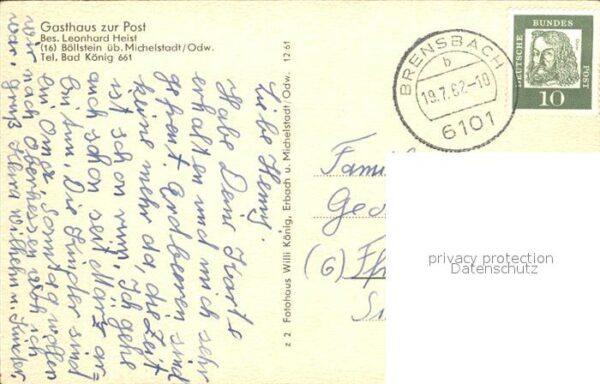 Gasthaus zur Post
Bes. Leonhard Heist
(16) Böllstein üb. Michelstadt/Odw.
Tel. Bad König 661
Liebe Henny!
Habe Deine Karte
erhalten und mich sehr
gefreut. Erdbeeren sind
keine mehr da, die Zeit
ist schon rum. Ich gehe
auch schon seit März ar-
beiten. Die Kinder sind
bei Oma, Sonntag wollen
wir nach Oberhessen wo ich
war. Gruß Klara Wilhelm u. Kinder
z 2 Fotohaus Willi König, Erbach u. Michelstadt/Odw. 12 61
BRENSBACH
b
19.7.62-10
6101
DEUTSCHE BUNDES POST
Dürer
10
Famil
Geo
(6)
privacy protection
Datenschutz